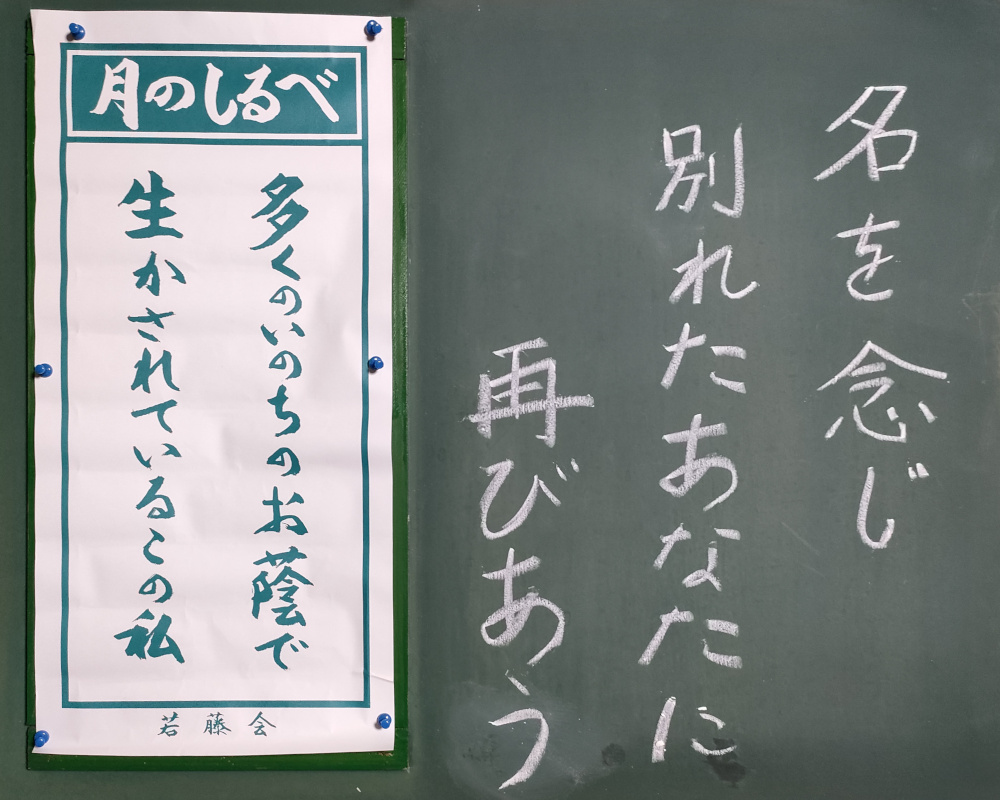 月のしるべ
多くのいのちのお蔭で
生かされているこの私
若藤会
名を念じ
別れたあなたに
再びあう